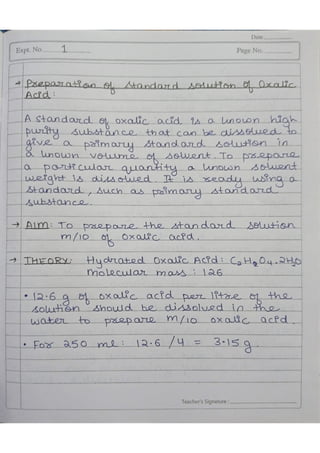 Date
Expt. No. 1
Page No.
→ Preparation of standard solution of Oxalic
Acid:
A standard of oxalic acid is a known high
purity substance that can be dissolved to
give a primary standard solution in
a known volume of solvent. To prepare
a particular quantity a known solvent
weight is dissolved. It is ready using a
standard, such as primary standard
substance.
→ AIM: To prepare the standard solution
M/10 of oxalic acid.
→ THEORY: Hydrated Oxalic Acid: C2H2O4.2H2O
Molecular mass: 126
• 12.6 g of oxalic acid per litre of the
solution should be dissolved in the
water to prepare M/10 oxalic acid.
• For 250 ml: 12.6/4 = 3.15 g.
Teacher's Signature: